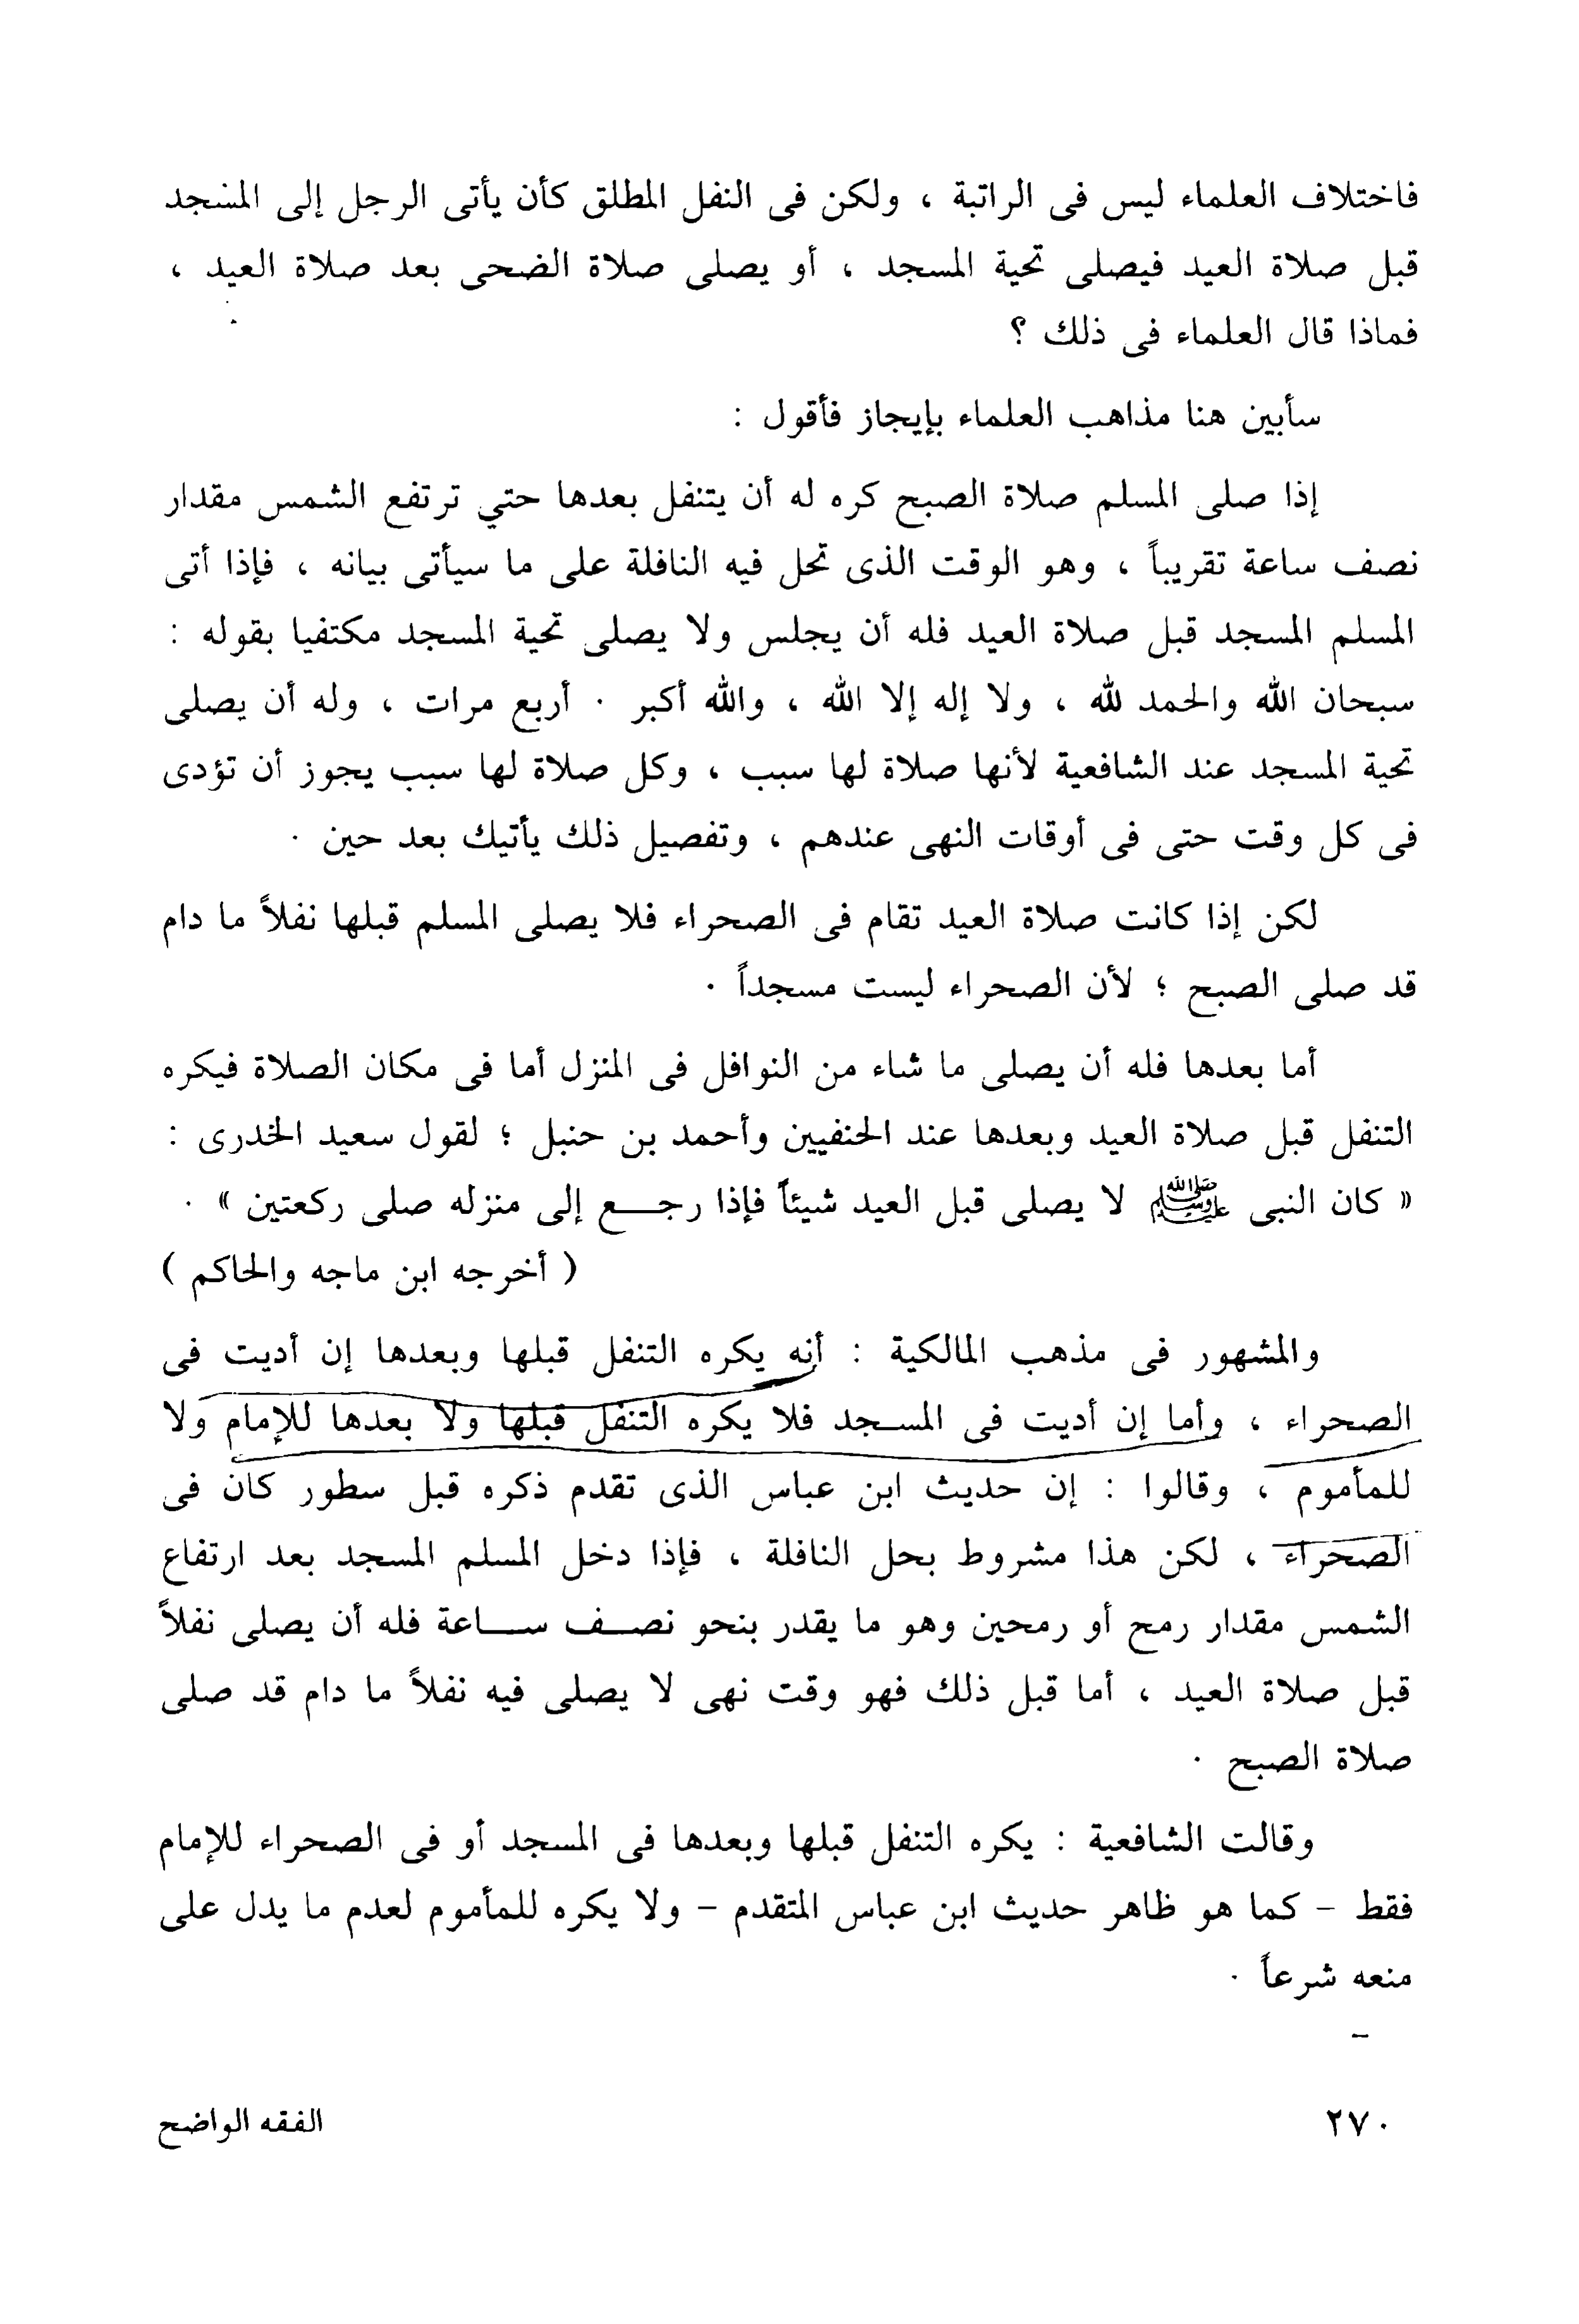 فاختلاف العلماء ليس فى الراتبة ، ولكن فى النفل المطلق كأن يأتى الرجل إلى المسجد
قبل صلاة العيد فيصلى تحية المسجد ، أو يصلى صلاة الضحى بعد صلاة العيد ،
فماذا قال العلماء فى ذلك ؟
سأبين هنا مذاهب العلماء بإيجاز فأقول :
إذا صلى المسلم صلاة الصبح كره له أن يتنفل بعدها حتي ترتفع الشمس مقدار
نصف ساعة تقريباً ، وهو الوقت الذى تحل فيه النافلة على ما سيأتى بيانه ، فإذا أتى
المسلم المسجد قبل صلاة العيد فله أن يجلس ولا يصلى تحية المسجد مكتفيا بقوله :
سبحان الله والحمد لله ، ولا إله إلا الله ، والله أكبر . أربع مرات ، وله أن يصلى
تحية المسجد عند الشافعية لأنها صلاة لها سبب ، وكل صلاة لها سبب يجوز أن تؤدى
فى كل وقت حتى فى أوقات النهى عندهم ، وتفصيل ذلك يأتيك بعد حين .
لكن إذا كانت صلاة العيد تقام فى الصحراء فلا يصلى المسلم قبلها نفلاً ما دام
قد صلى الصبح ؛ لأن الصحراء ليست مسجداً .
أما بعدها فله أن يصلى ما شاء من النوافل فى المنزل أما فى مكان الصلاة فيكره
التنفل قبل صلاة العيد وبعدها عند الحنفيين وأحمد بن حنبل ؛ لقول سعيد الخدرى :
« كان النبى ﷺ لا يصلى قبل العيد شيئاً فإذا رجــع إلى منزله صلى ركعتين » .
( أخرجه ابن ماجه والحاكم )
والمشهور فى مذهب المالكية : أنه يكره التنفل قبلها وبعدها إن أديت فى
الصحراء ، وأما إن أديت فى المسـجد فلا يكره التنفل قبلها ولا بعدها للإمام ولا
للمأموم ، وقالوا : إن حديث ابن عباس الذى تقدم ذكره قبل سطور كان فى
الصحراء ، لكن هذا مشروط بحل النافلة ، فإذا دخل المسلم المسجد بعد ارتفاع
الشمس مقدار رمح أو رمحين وهو ما يقدر بنحو نصــف ســاعة فله أن يصلى نفلاً
قبل صلاة العيد ، أما قبل ذلك فهو وقت نهى لا يصلى فيه نفلاً ما دام قد صلى
صلاة الصبح .
وقالت الشافعية : يكره التنفل قبلها وبعدها فى المسجد أو فى الصحراء للإمام
فقط - كما هو ظاهر حديث ابن عباس المتقدم - ولا يكره للمأموم لعدم ما يدل على
منعه شرعاً .
٢٧٠
الفقه الواضح